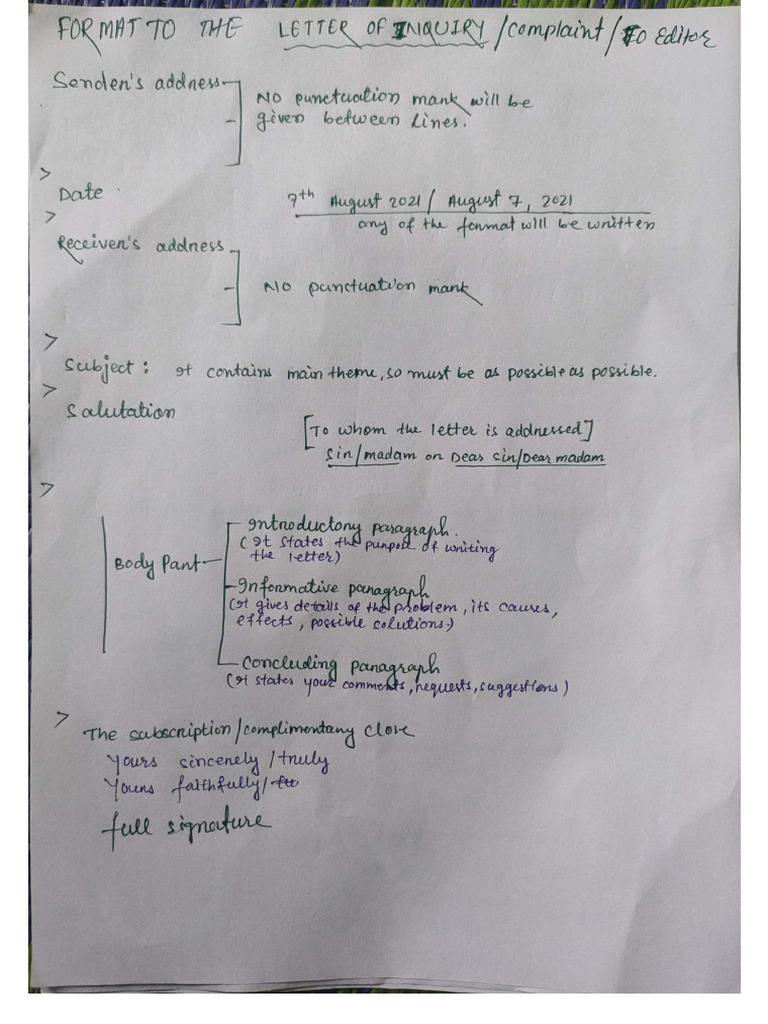 FORMAT TO THE LETTER OF INQUIRY/complaint/To Editor
Sender's address
No punctuation mark will be
given between Lines.
>
Date
7th August 2021/ August 7, 2021
any of the format will be written
>
Receiver's address
No punctuation mark
>
Subject: It contains main theme, so must be as possible as possible.
>
Salutation
[To whom the letter is addressed]
Sir/madam or Dear Sir/Dear madam
>
Body Part
Introductory paragraph.
(It states the purpose of writing
the letter)
Informative paragraph
(It gives details of the problem, its causes,
effects, possible solutions.)
Concluding paragraph
(It states your comments, requests, suggestions)
>
The subscription/complimentary close
Yours sincerely/truly
Yours faithfully/
full signature